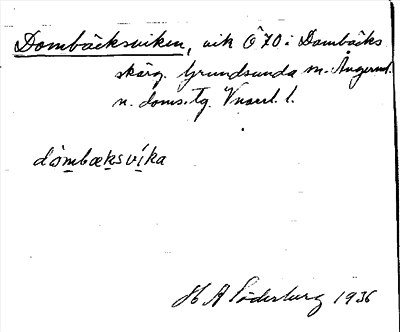 Dombäcksviken, vik Ö 70 i Dombäcks
skärg. Grundsunda sn. Ångerml.
n. doms. tg. Vnorrl. l.
dòmbæksvíka
H A Söderberg 1936